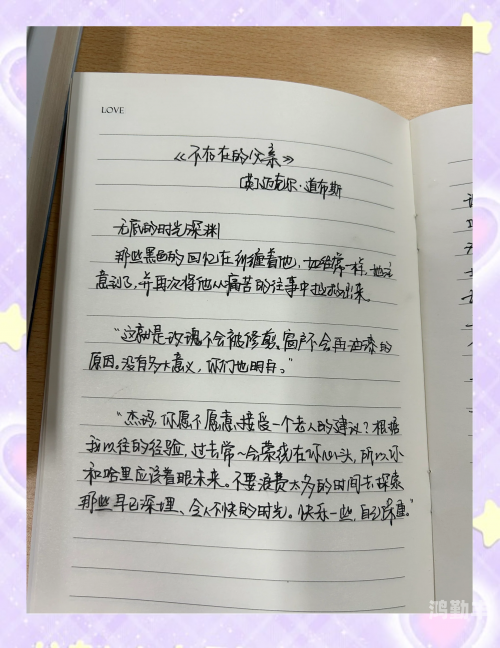 LOVE
《不存在的父亲》
[英]迈克尔·道布斯
无底的时光深渊
那些黑色的回忆在纠缠着他，如经常一样，她注
意到了，并再次将他从痛苦的往事中拉出来。
"这就是玫瑰不会被修剪、窗户不会再油漆的
原因。没有多大意义，你们也明白。"
"杰玛，你愿不愿意接受一个老人的建议？根据
我以往的经验，过去常会萦绕在你心头，所以，你
和哈里应该着眼未来。不要浪费太多的时间去探索
那些早已深埋、令人不快的时光。快乐一些，自己保重。"
鸿勤